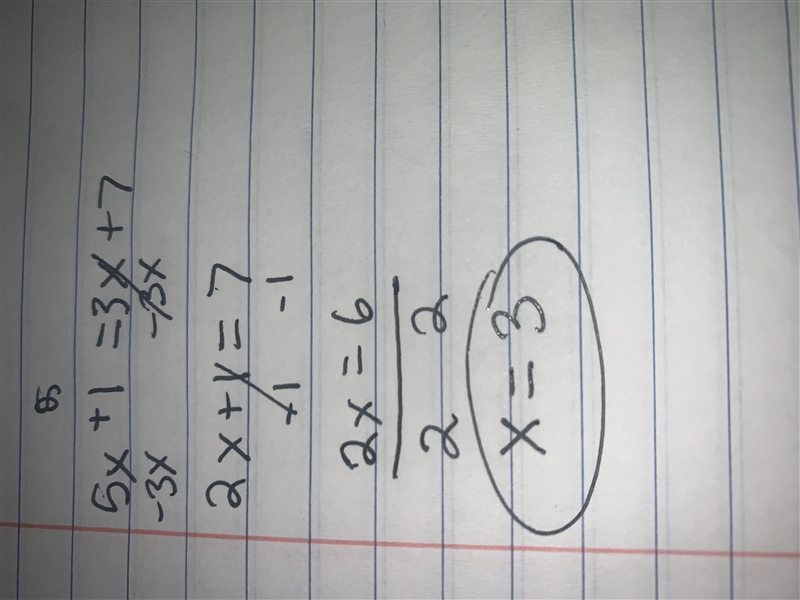 5x + 1 = 3x + 7
-3x -3x
2x + 1 = 7
+1 -1
2x = 6
2 2
x = 3